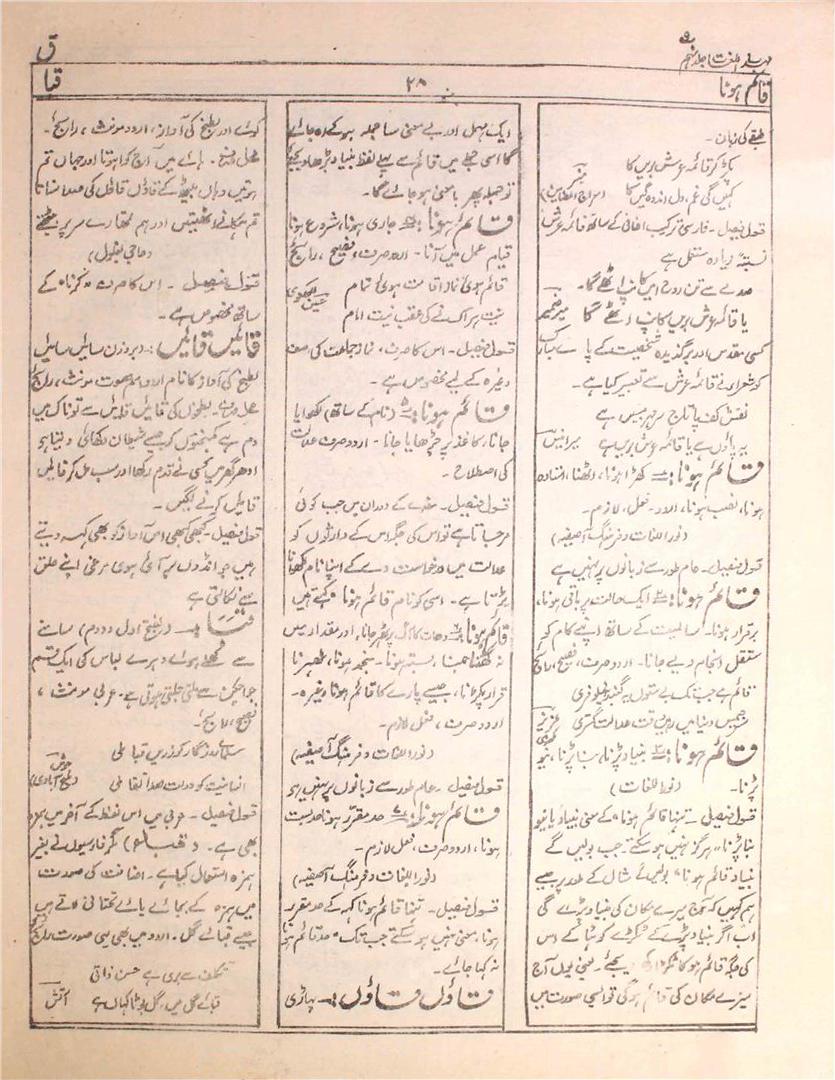 ق
مہذب اللغات جلد نہم
قبا
۲۸
قائم ہونا
طبقے کی زبان۔
پکڑ کر قائمہ عرش بریں کا
کہیں گی غم دل اندوہگیں کا (سراج المضامین)
قول فیصل۔ فارسی ترکیب اضافی کے ساتھ قائمہ عرش
نسبتہً زیادہ مستعمل ہے
صدمے سے تن روح امیں کانپ اٹھے گا۔
یا قائمہ عرش بریں کانپ اٹھے گا میر ضمیر
کسی مقدس اور برگزیدہ شخصیت کے پائے مبارک
کو شعراء نے قائمہ عرش سے تعبیر کیا ہے۔
نقش کف پا تاج سر مہر مبیں ہے
یہ پاؤں ہے یا قائمہ عرش بریں ہے میر انیس
قائم ہونا: کھڑا ہونا، اٹھنا، استادہ
ہونا، نصب ہونا، اردو۔ فعل، لازم۔
(نور اللغات و فرہنگ آصفیہ)
قول فیصل۔ عام طور سے زبانوں پر نہیں ہے
قائم ہونا: ایک حالت پر باقی ہونا،
برقرار ہونا۔ سالمیت کے ساتھ اپنے کام کو
مستقل انجام دیے جانا۔ اردو صرف، فصیح، رائج
قائم ہے جب تک بے ستوں یہ گنبد نیلوفری
جس دنیا میں رہیں وقف عدالت گستری عزیز لکھنوی
قائم ہونا: بنیاد پڑنا، بنا پڑنا، نیو
پڑنا۔ (نور اللغات)
قول فیصل۔ تنہا قائم ہونا کے معنی بنیاد یا نیو
بنا پڑنا، ہرگز نہیں ہو سکتے۔ جب بولیں گے
بنیاد قائم ہونا، بولیں گے مثال کے طور پر جیسے
ہم کہیں کہ آج میرے مکان کی بنیاد پڑے گی
اب اگر بنیاد پڑے کے ٹکڑے کو ہٹا کے اس
کی جگہ قائم ہو کا ٹکڑا رکھ دیجئے۔ یعنی یوں آج
میرے مکان کی قائم ہوگی تو ایسی صورت میں
ایک مہمل اور بے معنی سا جملہ ہو کے رہ جائے
گا اسی جملے میں قائم سے پہلے لفظ بنیاد بڑھا دیجئے
تو جملہ پھر بامعنی ہو جائے گا۔
قائم ہونا: جاری ہونا، شروع ہونا
قیام عمل میں آنا۔ اردو صرف، فصیح، رائج
قائم ہوئی نماز اقامت ہوئی تمام
نیت ہر اک نے کی عقب نیت امام
قول فیصل۔ اس کا صرف، نماز جماعت کی صف
وغیرہ کے لیے مخصوص ہے۔
قائم ہونا: (نام کے ساتھ) لکھوایا
جانا، کاغذ پر چڑھایا جانا۔ اردو صرف عدالت
کی اصطلاح۔
قول فیصل۔ مقدمے کے دوران میں جب کوئی
مر جاتا ہے تو اس کی جگہ اس کے وارثوں کو
عدالت میں درخواست دے کے اپنا نام لکھوانا
پڑتا ہے۔ اسی کو نام قائم ہونا کہتے ہیں
قائم ہونا: دھات کا آگ پر ٹھہر جانا، اور مقدار میں
نہ گھٹنا جمنا، بستہ ہونا۔ منجمد ہونا، ٹھہرنا
قرار پکڑنا، جیسے پارے کا قائم ہونا وغیرہ۔
اردو صرف، فعل لازم۔
(نور اللغات و فرہنگ آصفیہ)
قول فیصل۔ عام طور سے زبانوں پر نہیں ہے
قائم ہونا: حد مقرر ہونا، حد بست
ہونا، اردو صرف، فعل لازم۔
(نور اللغات و فرہنگ آصفیہ)
قول فیصل۔ تنہا قائم ہونا کہہ کے حد مقرر
ہونا، معنی نہیں ہو سکتے جب تک حد قائم ہونا
نہ کہا جائے۔
قاؤں قاؤں: پہاڑی
کوئے اور بطخ کی آواز، اردو مونث، رائج۔
محل صرف۔ ہائے میں آج کوا ہوتا اور جہاں تم
ہوتیں وہاں بیٹھ کے قاؤں قاؤں کی صدا سناتا
تم ہکانے اٹھتیں اور ہم تمہارے سر پر بیٹھتے
(حاجی بغلول)
قول فیصل۔ اس کا صرف "کرنا" کے
ساتھ مخصوص ہے۔
قائیں قائیں: (بروزن سائیں سائیں
بطخ کی آواز کا نام اردو اسم صوت مونث، رائج
محل صرف۔ بطخوں کی قائیں قائیں سے تو ناک میں
دم ہے کمبختوں کو جیسے شیطان دکھائی دیتا ہو
ادھر گھر میں کسی نے قدم رکھا اور سب مل کر قائیں
قائیں کرنے لگیں۔
قول فیصل۔ کبھی کبھی اس آواز کو بھی کہہ دیتے
ہیں جو انڈوں پر آئی ہوئی مرغی اپنے حلق
سے نکالتی ہے
قبا: (بفتح اول و دوم) سامنے
سے کھلے ہوئے دہرے لباس کی ایک قسم
جو اچکن سے ملتی جلتی ہوتی ہے۔ عربی مونث،
فصیح، رائج۔
سلمائے روزگار کو زریں قبا ملی
انسانیت کو دولت صدق و صفا ملی جوش (ملیح آبادی)
قول فیصل۔ عربی میں اس لفظ کے آخر میں ہمزہ
بھی ہے۔ (قباء) مگر فارسیوں نے بغیر
ہمزہ استعمال کیا ہے۔ اضافت کی صورت
میں ہمزہ کے بجائے یائے تحتانی لاتے ہیں
جیسے قبائے گل۔ اردو میں بھی یہی صورت رائج
تکلف سے بری ہے حسن ذاتی
قبائے گل میں، گل بوٹا کہاں ہے آتش